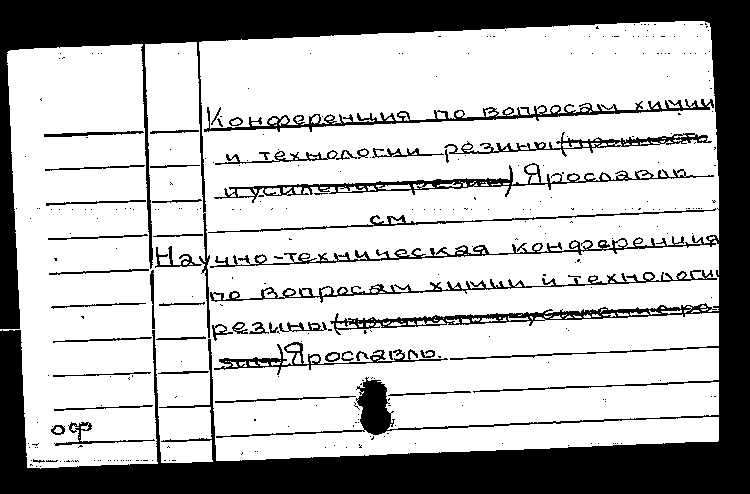 Конференция по вопросам химии
и технологии резины (прочность
и усиление резин). Ярославль.
см.
Научно-техническая конференция
по вопросам химии и технологии
резины (прочность и усиление ре-
зин) Ярославль.
оф